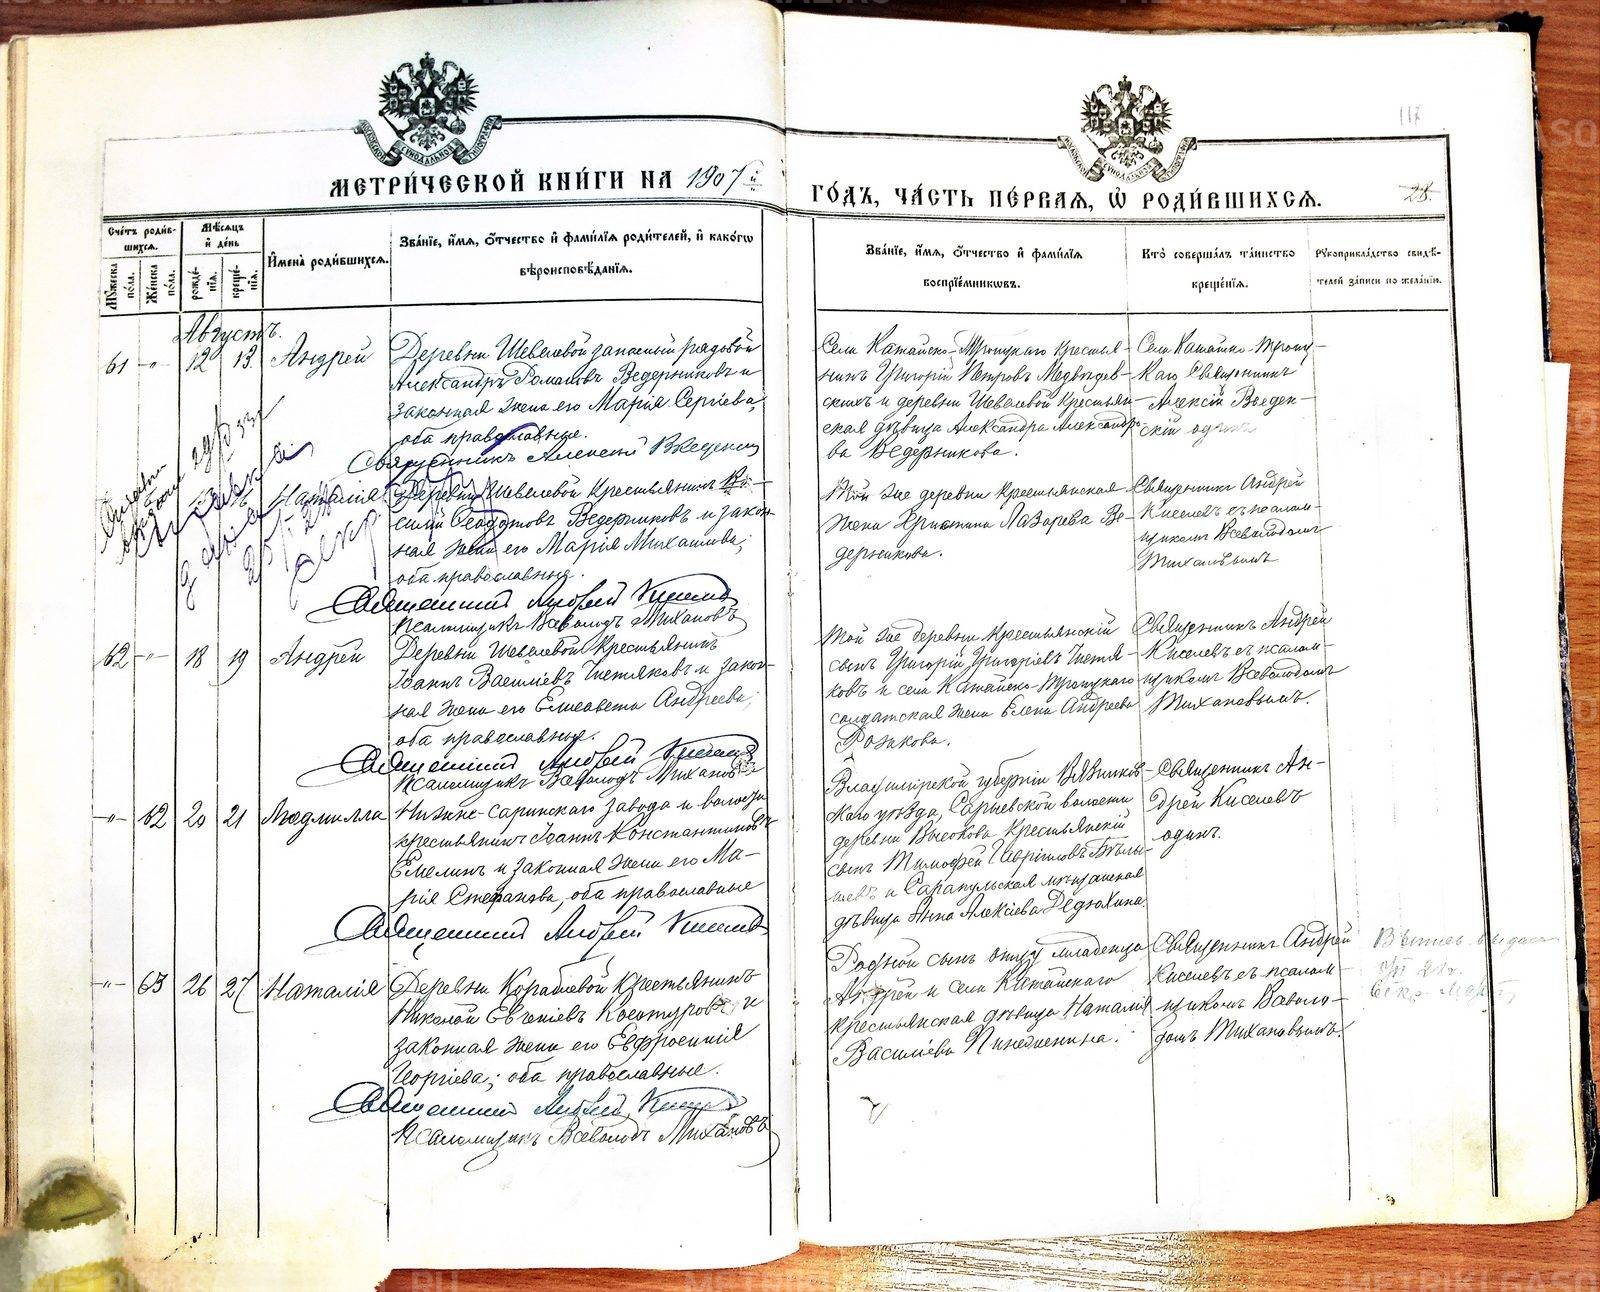 117
МЕТРИ́ЧЕСКОЙ КНИ́ГИ НА 1907й
ГО́ДЪ, ЧА́СТЬ ПЕ́РВАЯ, Ѡ РОДИ́ВШИХСЯ.
28.
Сче́тъ роди́в-
шихся.
Мѣ́сяцъ
и де́нь
Му́жеска по́ла.
Же́нска по́ла.
рожде́-
нїя.
креще́-
нїя.
Имена̀ роди́вшихся.
Зва́нїе, и́мя, о́тчество и фами́лїя роди́телей, и како́гѡ
вѣроисповѣ́данїя.
Зва́нїе, и́мя, о́тчество и фами́лїя
воспрїе́мникѡвъ.
Кто̀ соверша́лъ та́инство
креще́нїя.
Рукоприкла́дство свидѣ́-
телей за́писи по жела́нїю.
Августъ.
61 -"- 12 13. Андрей
Деревни Шевелевой запасный рядовой
Александръ Романовъ Ведерниковъ и
законная жена его Марія Сергіева,
оба православные.
Священникъ Алексій Введенскій
Села Катайско-Троицкаго крестья-
нинъ Григорій Петровъ Медвѣдев-
скихъ и деревни Шевелевой крестьян-
ская дѣвица Александра Александро-
ва Ведерникова.
Села Катайско-Троиц-
каго Священникъ
Алексій Введен-
скій одинъ
Наталія
Деревни Шевелевой крестьянинъ Ва-
силій Феодотовъ Ведерниковъ и закон-
ная жена его Марія Михаилова;
оба православные.
Священникъ Андрей Киселевъ
Псаломщикъ Всеволодъ Тихановъ
Той же деревни крестьянская
жена Христина Лазарева Ве-
дерникова.
Священникъ Андрей
Киселевъ съ псалом-
щикомъ Всеволодомъ
Тихановымъ
62 -"- 18 19 Андрей
Деревни Шевелевой крестьянинъ
Іоаннъ Васильевъ Чистяковъ и закон-
ная жена его Елисавета Андреева;
оба православные.
Священникъ Андрей Киселевъ
Псаломщикъ Всеволодъ Тихановъ
Той же деревни крестьянскій
сынъ Григорій Григоріевъ Чистя-
ковъ и села Катайско-Троицкаго
солдатская жена Елена Андреева
Розакова.
Священникъ Андрей
Киселевъ съ псалом-
щикомъ Всеволодомъ
Тихановымъ.
-"- 62 20 21 Людмилла
Нижне-Саринскаго завода и волости
крестьянинъ Іоаннъ Константиновъ
Емелинъ и законная жена его Ма-
рія Стефанова, оба православные
Священникъ Андрей Киселевъ
Владимірской губерніи Вязников-
каго уѣзда, Сарыевской волости
деревни Высокова крестьянскій
сынъ Тимофей Гавріиловъ Бѣлы-
шевъ и Сарапульская мѣщанская
дѣвица Анна Алексіева Дедюхина.
Священникъ Ан-
дрей Киселевъ
одинъ.
-"- 63 26 27 Наталія
Деревни Кораблевой крестьянинъ
Никаноръ Евгеніевъ Косотуровъ и
законная жена его Евфросинія
Георгіева; оба православные.
Священникъ Андрей Киселевъ
Псаломщикъ Всеволодъ Тихановъ
Родной сынъ отцу младенца
Андрей и села Катайскаго
крестьянская дѣвица Наталія
Василіева Пинаженина.
Священникъ Андрей
Киселевъ съ псалом-
щикомъ Всеволо-
домъ Тихановымъ.